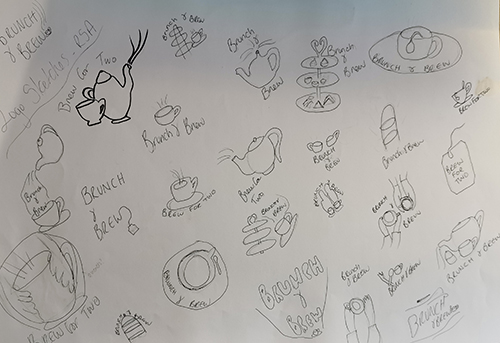 BRUNCH
& BREW
Logo Sketches - RSA
Brew for Two
Brunch
& Brew
Brunch
&
Brew
Brunch
&
Brew
BRUNCH & BREW
BREW FOR TWO
Brunch & Brew
Brunch
&
Brew
BRUNCH
&
BREW
BREW FOR TWO
Brew for
Two
BRUNCH
&
BREW
Brunch & Brew
BREW
FOR
TWO
BRUNCH
& BREW
BRUNCH
&
BREW
BRUNCH
BREW
BRUNCH & BREW
Brew for Two
BRUNCH & BREW
BRUNCH
&
BREW
BRUNCH
& BREW
BRUNCH & BREW
BRUNCH
& BREW